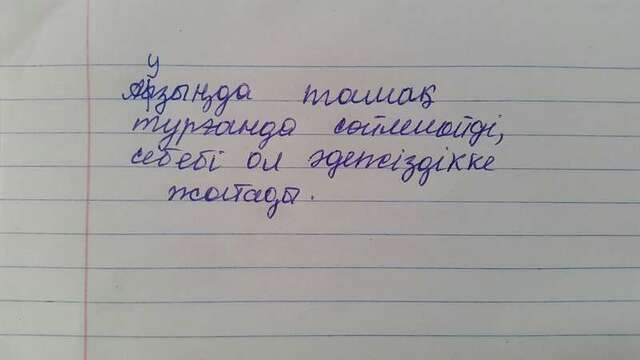 Аузыңда тамақ
тұрғанда сөйлемейді,
себебі ол әдепсіздікке
жатады.